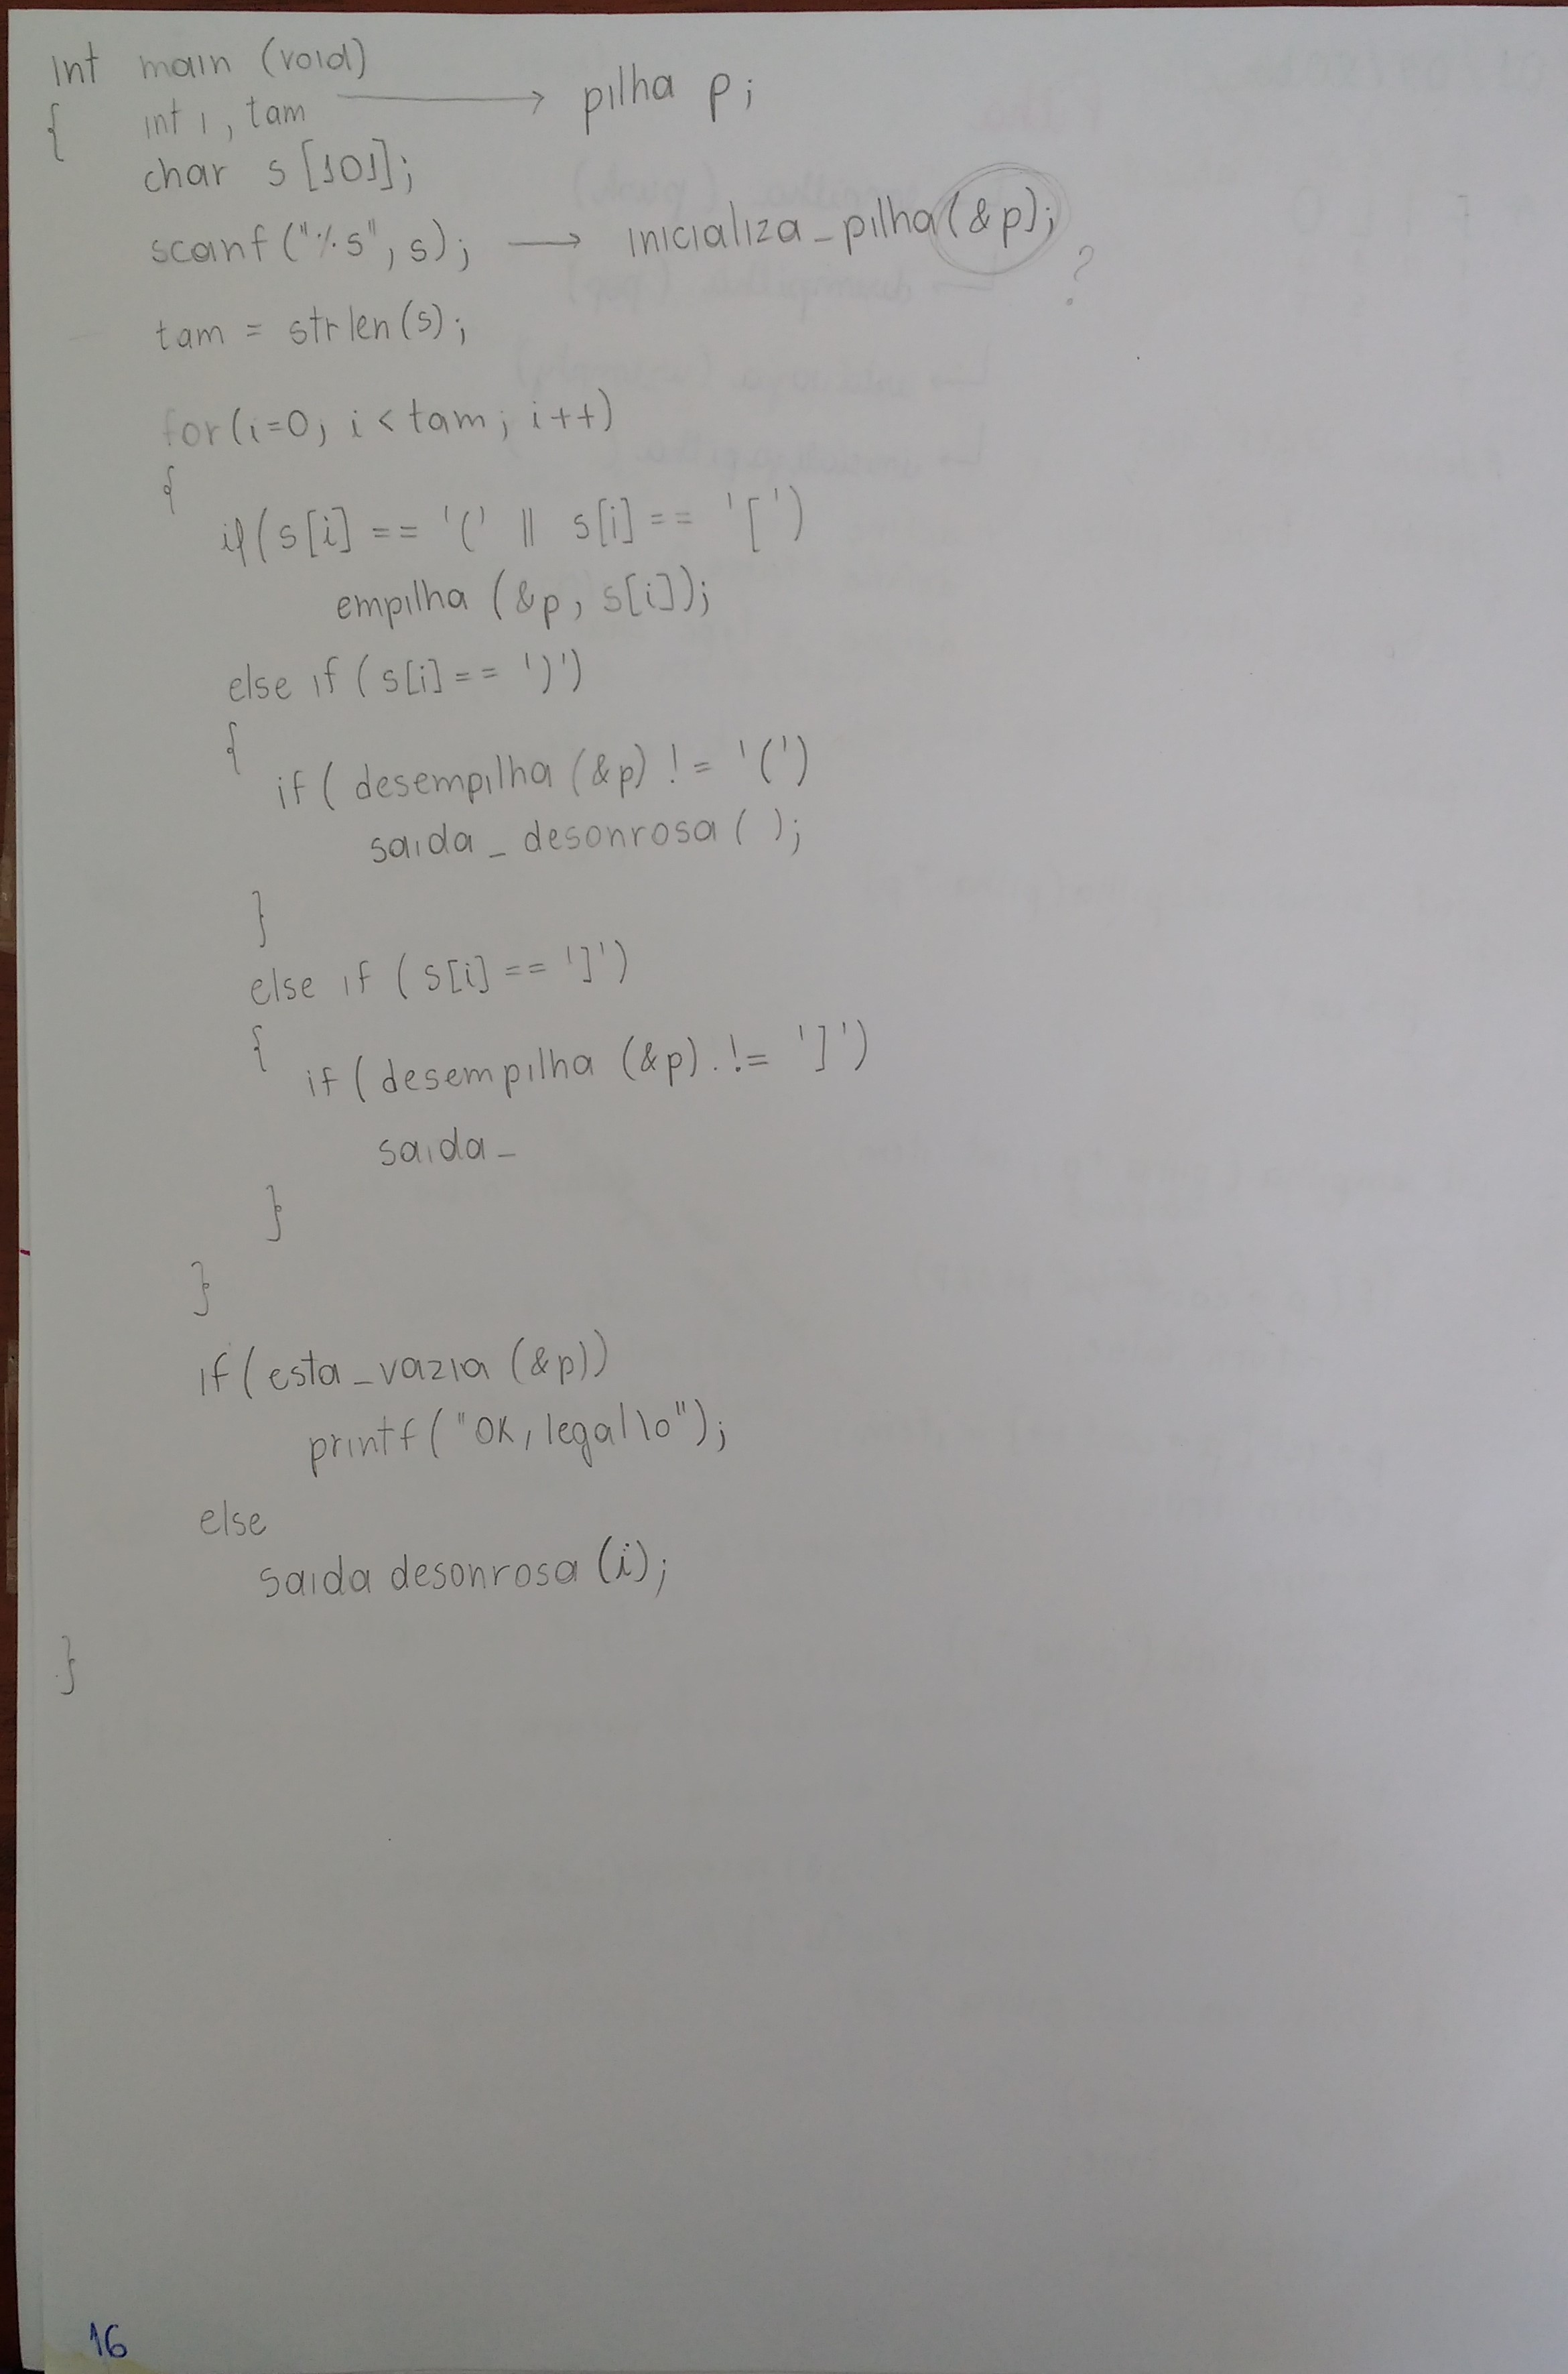 int main (void)
{ int i, tam → pilha p;
char s[101];
scanf("%s", s); → inicializa_pilha(&p); ?
tam = strlen(s);
for(i=0; i < tam; i++)
{
if(s[i] == '(' || s[i] == '[')
empilha (&p, s[i]);
else if (s[i] == ')')
{
if( desempilha (&p) != '(')
saida_desonrosa( );
}
else if (s[i] == ']')
{ if( desempilha (&p) != ']')
saida_
}
}
if(esta_vazia (&p))
printf("OK, legal\o");
else
saida desonrosa (i);
}
16